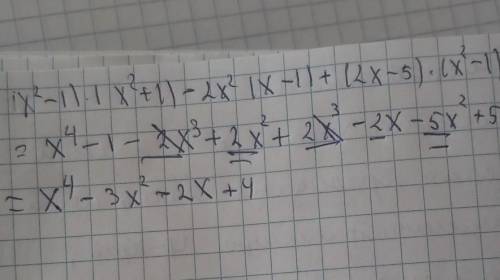 (x²-1)·(x²+1)-2x²(x-1)+(2x-5)·(x²-1)
= x⁴-1-2x³+2x²+2x³-2x-5x²+5
= x⁴-3x²-2x+4